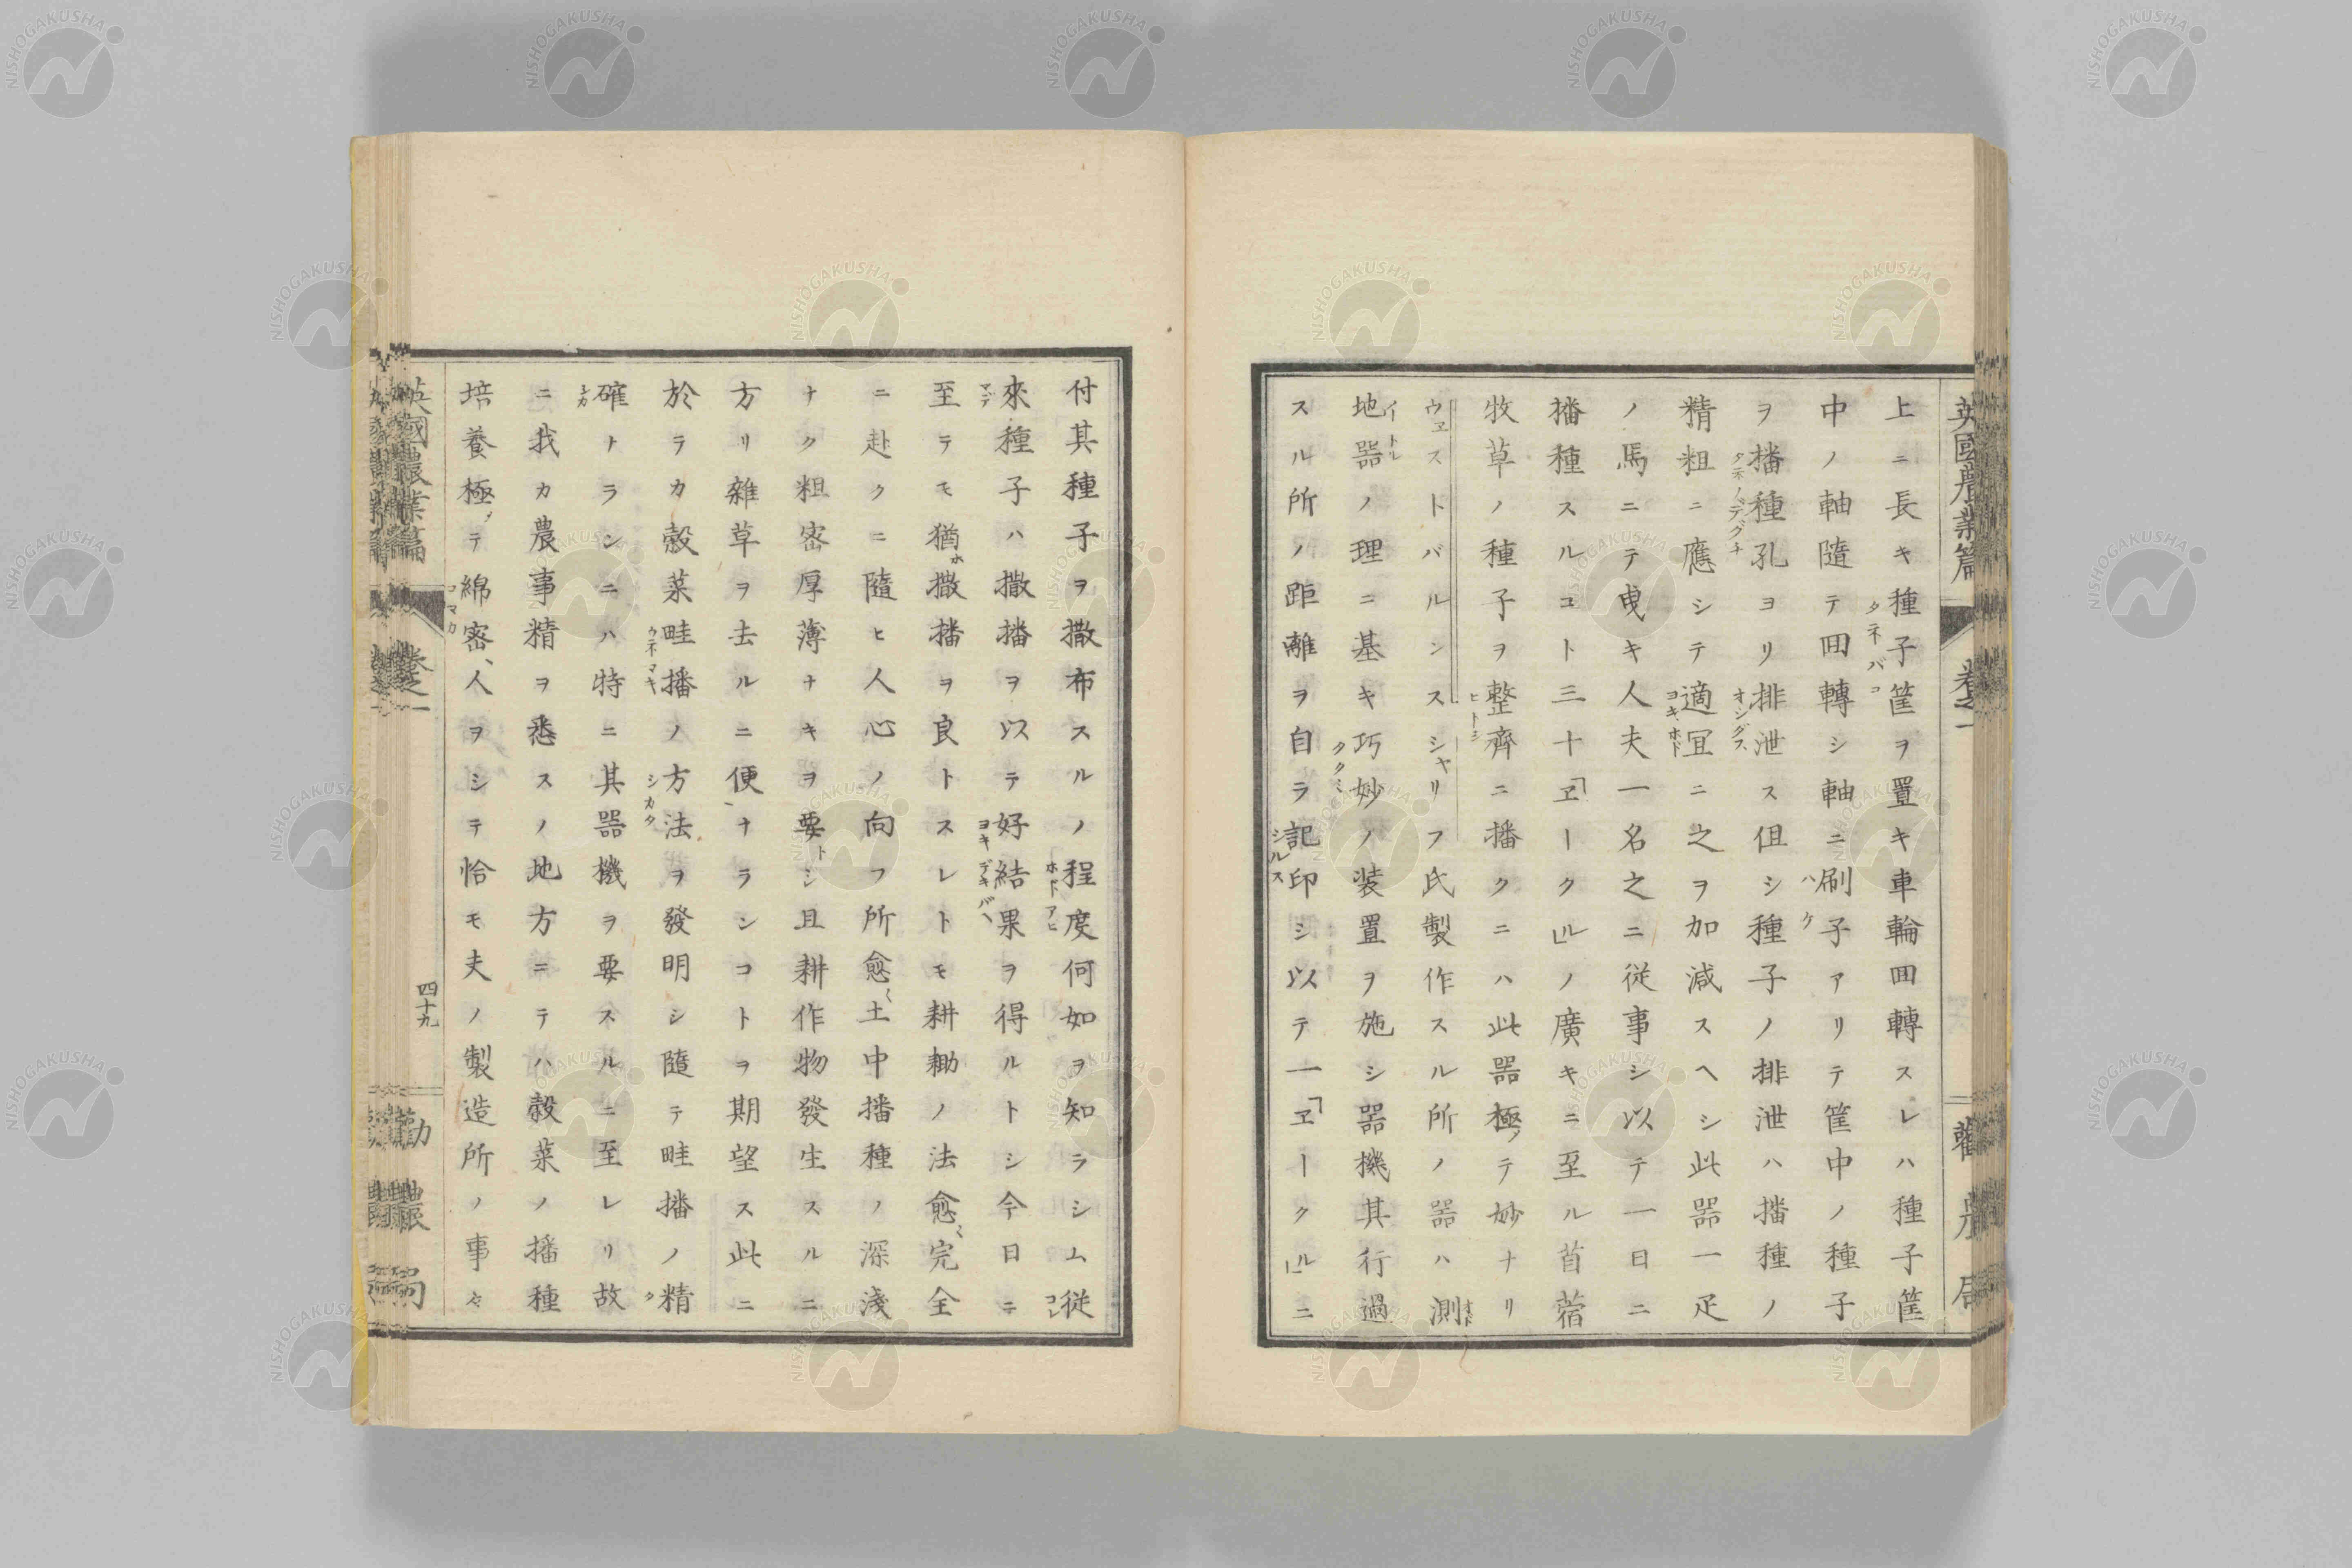 英國農業篇 卷之一 勸農局
上ニ長キ種子筐ヲ置キ車輪囬轉スレハ種子筐
中ノ軸隨テ囬轉シ軸ニ刷子アリテ筐中ノ種子
ヲ播種孔ヨリ排泄ス伹シ種子ノ排泄ハ播種ノ
精粗ニ應シテ適冝ニ之ヲ加減スヘシ此器一疋
ノ馬ニテ曳キ人夫一名之ニ従事シ以テ一日ニ
播種スルコト三十「ヱークル」ノ廣キニ至ル首蓿
牧草ノ種子ヲ整齊ニ播クニハ此器極テ妙ナリ
ウヱストバルンスシャリフ氏製作スル所ノ器ハ測
地器ノ理ニ基キ巧妙ノ装置ヲ施シ器機其行過
スル所ノ距離ヲ自ラ記印シ以テ一「ヱークル」ニ
付其種子ヲ撒布スルノ程度何如ヲ知ラシム従
來種子ハ撒播ヲ以テ好結果ヲ得ルトシ今日ニ
至テモ猶撒播ヲ良トスレトモ耕耡ノ法愈〻完全
ニ赴クニ隨ヒ人心ノ向フ所愈〻土中播種ノ深淺
ナク粗密厚薄ナキヲ要トシ且耕作物發生スルニ
方リ雜草ヲ去ルニ便ナランコトヲ期望ス此ニ
於テカ穀菜畦播ノ方法ヲ發明シ隨テ畦播ノ精
確ナランニハ特ニ其器機ヲ要スルニ至レリ故
ニ我カ農事精ヲ悉スノ地方ニテハ穀菜ノ播種
培養極テ綿密、人ヲシテ恰モ夫ノ製造所ノ事々
英國農業篇 卷之一 四十九 勸農局